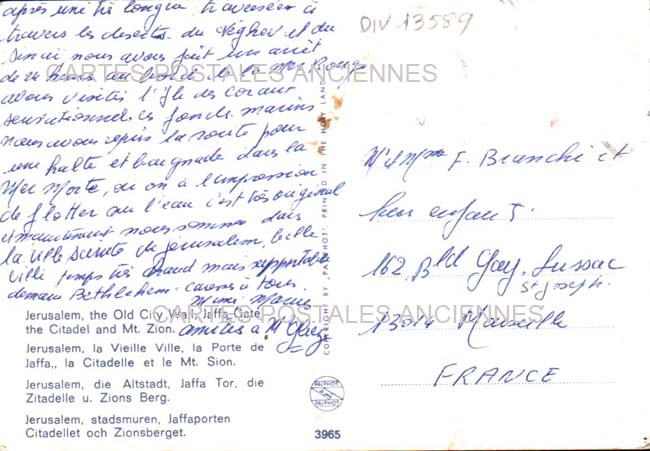 après une très longue traversée à
travers les deserts du Néghev et du
Sinaï nous avons fait un arrêt
de heures au bord de la mer Rouge
avons visités l'île des coraux
sensationnel ces fonds marins
nous avons repris la route pour
une halte et baignade dans la
Mer Morte, ou on a l'impression
de flotter sur l'eau c'est très original
et maintenant nous sommes dans
la ville Sainte de Jérusalem, belle
ville temps très chaud mais supportable
demain Bethléhem. à tous.
Mimi
amitiés à Mr
DIV 13589
CARTES POSTALES ANCIENNES
CARTES POSTALES ANCIENNES
Mr et Mme F. Branchi et
leurs enfants.
162 Bld Gay-Lussac
St Joseph.
13014 Marseille
FRANCE
COPYRIGHT BY "PALPHOT" PRINTED IN THE HOLY LAND
Jerusalem, the Old City Wall, Jaffa Gate
the Citadel and Mt. Zion.
Jerusalem, la Vieille Ville, la Porte de
Jaffa,, la Citadelle et le Mt. Sion.
Jerusalem, die Altstadt, Jaffa Tor, die
Zitadelle u. Zions Berg.
Jerusalem, stadsmuren, Jaffaporten
Citadellet och Zionsberget.
PALPHOT
PALPHOT
3965